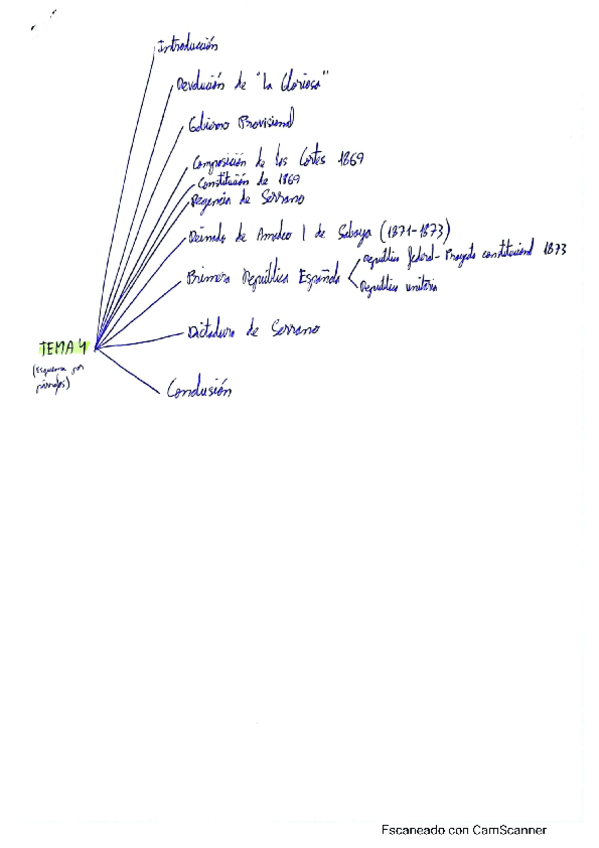 Introducción
Revolución de "La Gloriosa"
Gobierno Provisional
Composición de las Cortes 1869
Constitución de 1869
Regencia de Serrano
Reinado de Amadeo I de Saboya (1871-1873)
República federal - Proyecto constitucional 1873
Primera República Española
República unitaria
Dictadura de Serrano
TEMA 4
(Esquema por párrafos)
Conclusión
Escaneado con CamScanner